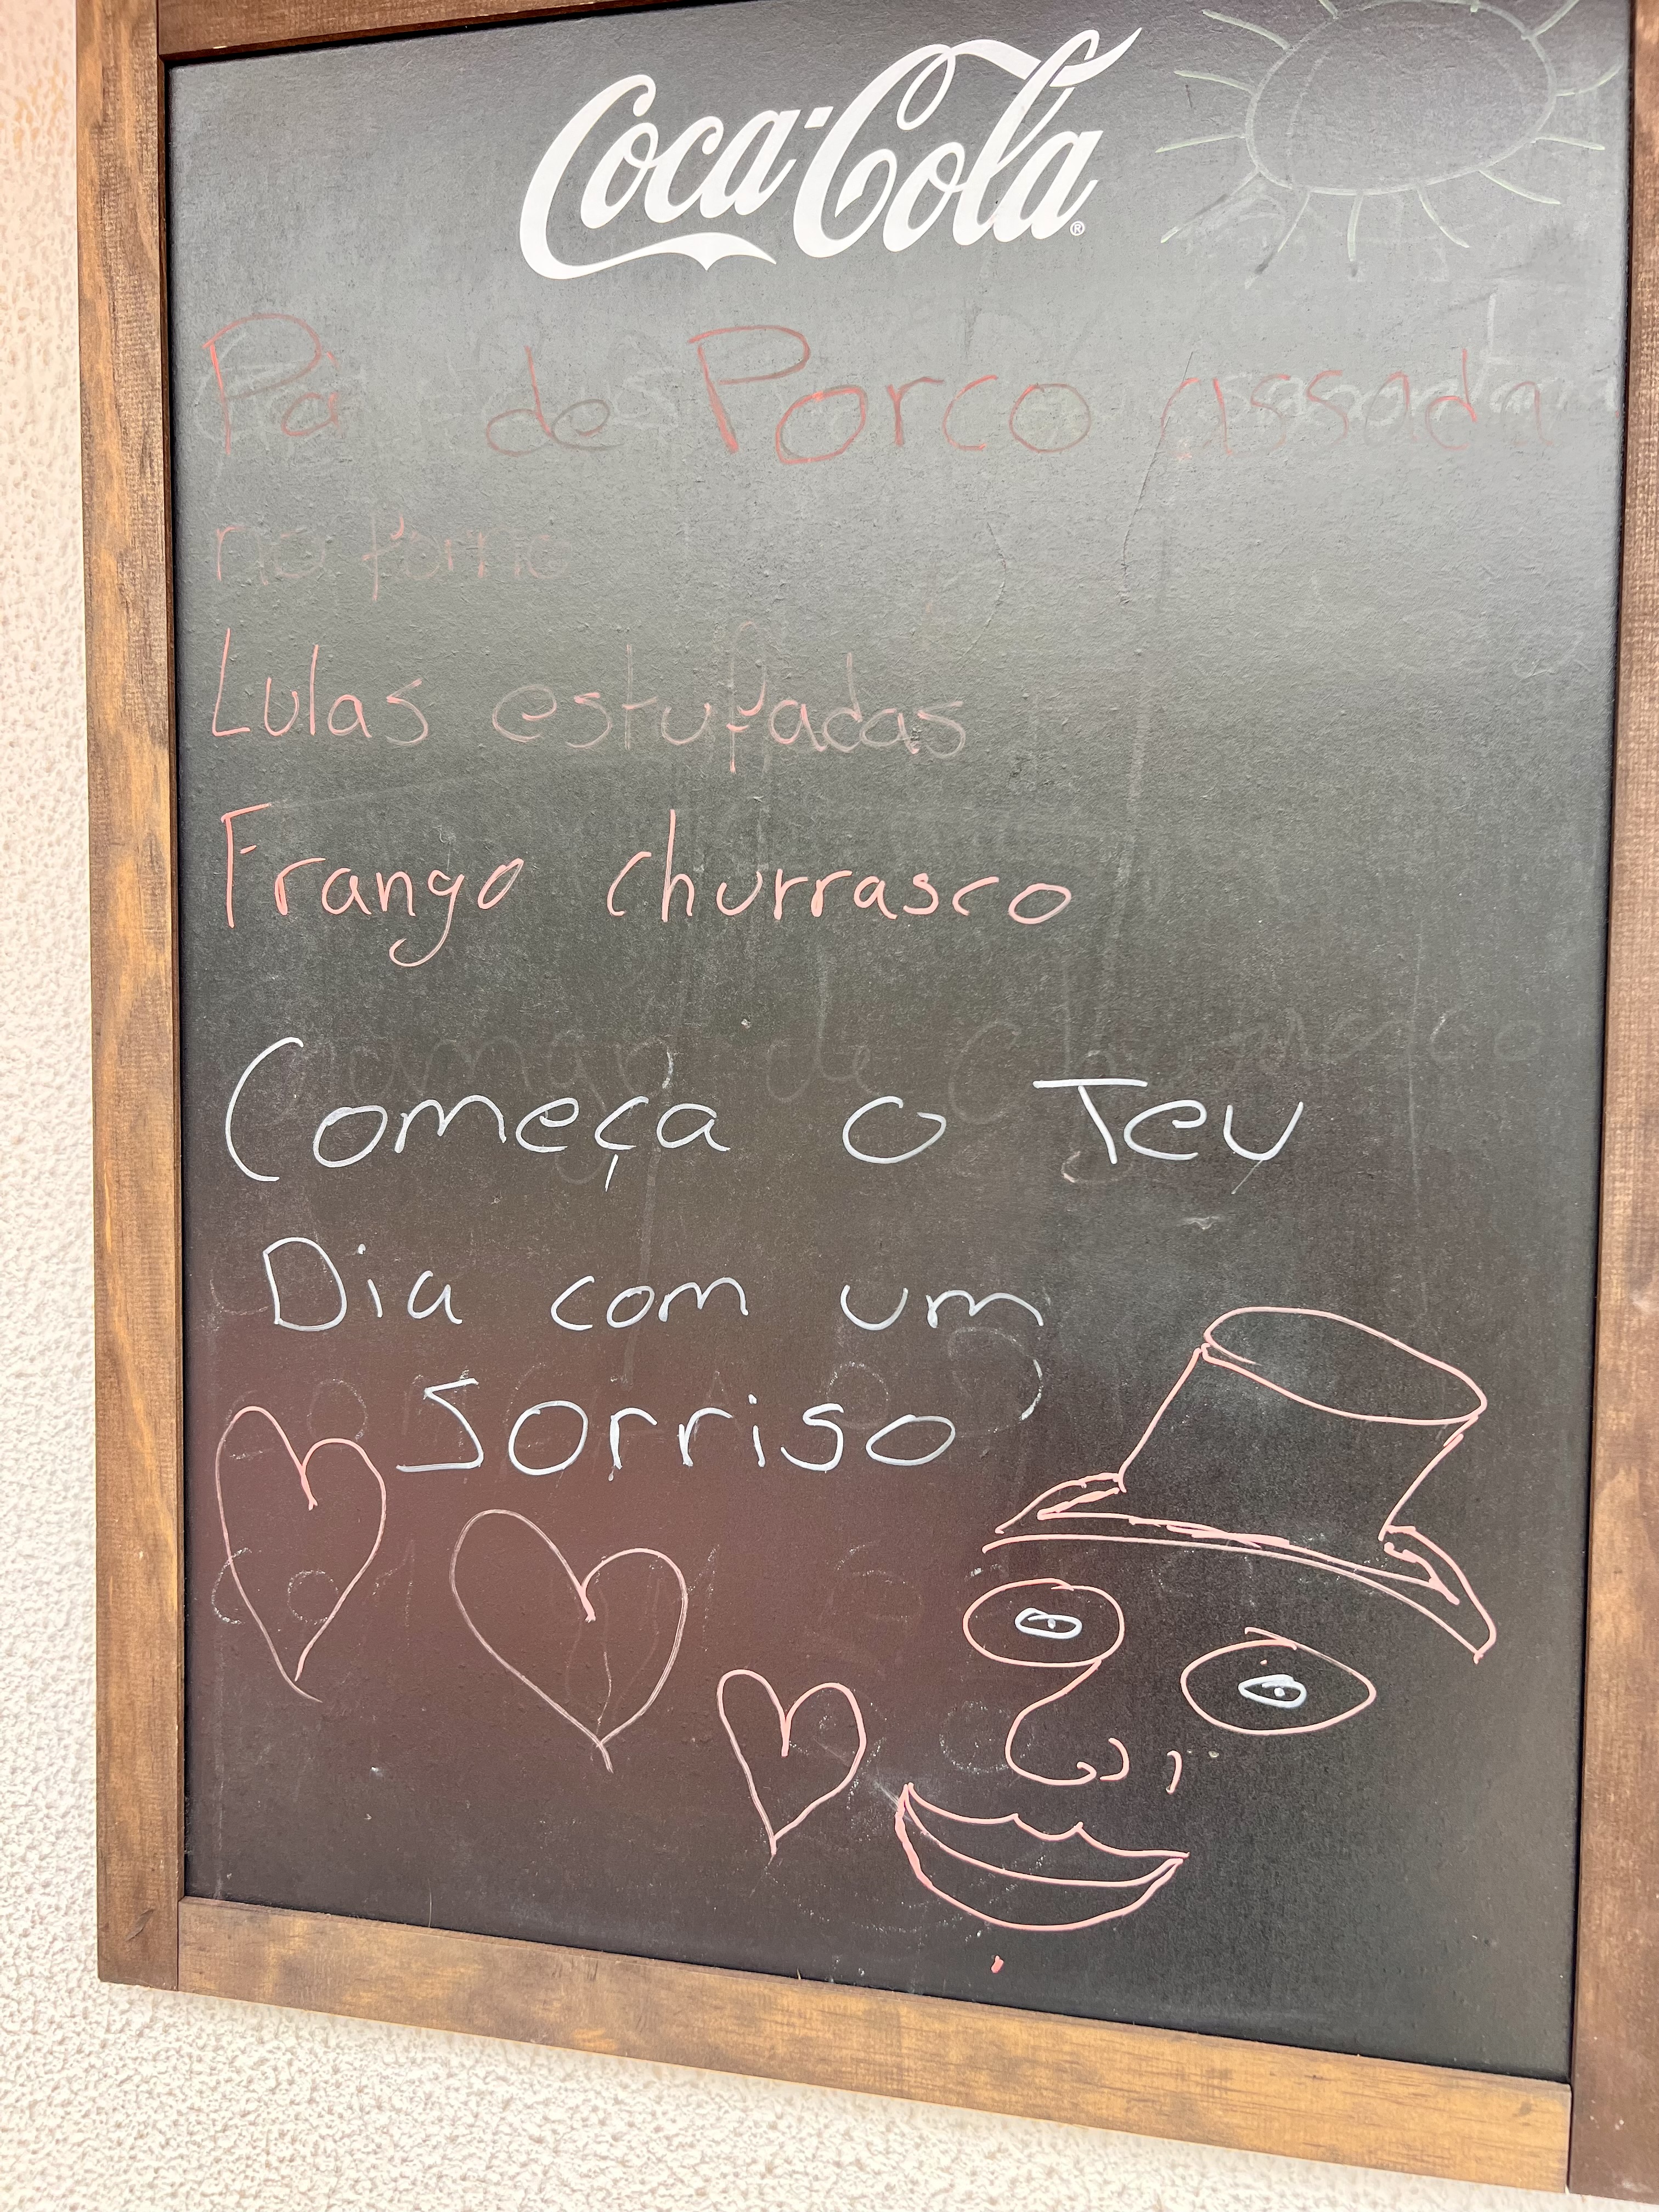 Coca-Cola®
Pà de Porco assada
no forno
Lulas estufadas
Frango churrasco
Começa o Teu
Dia com um
Sorriso